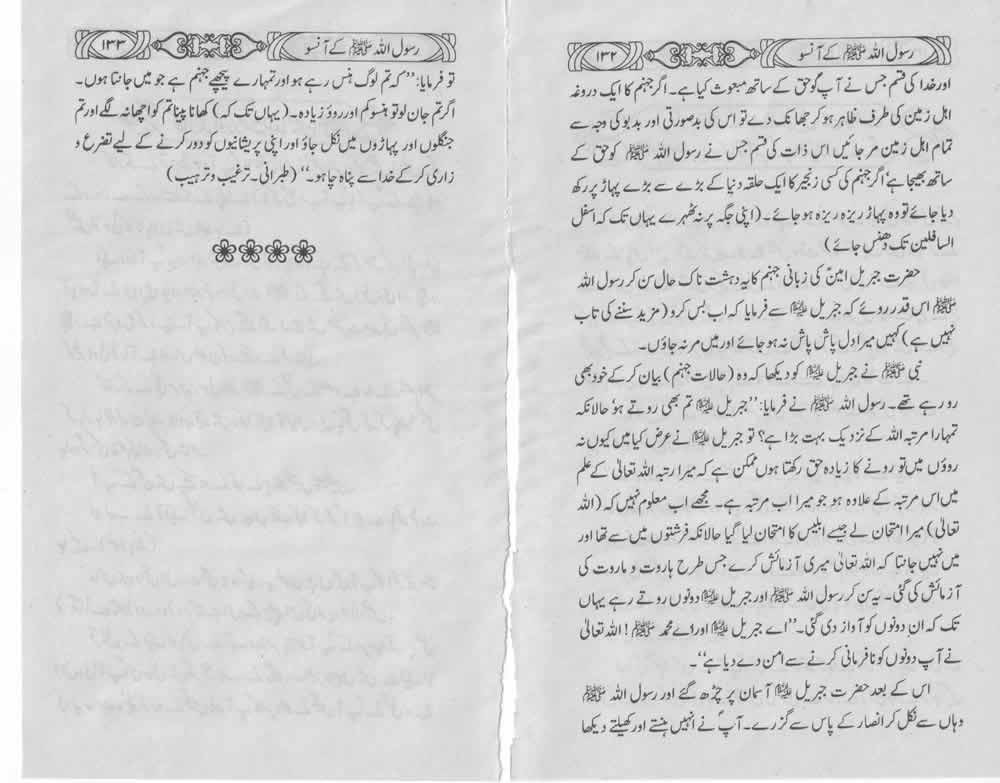 رسول اللہ ﷺ کے آنسو
۱۳۲
اور خدا کی قسم جس نے آپ کو حق کے ساتھ مبعوث کیا ہے۔ اگر جہنم کا ایک دروغہ
اہل زمین کی طرف ظاہر ہو کر جھانک دے تو اس کی بدصورتی اور بدبو کی وجہ سے
تمام اہل زمین مر جائیں اس ذات کی قسم جس نے رسول اللہ ﷺ کو حق کے
ساتھ بھیجا ہے' اگر جہنم کی کسی زنجیر کا ایک حلقہ دنیا کے بڑے سے بڑے پہاڑ پر رکھ
دیا جائے تو وہ پہاڑ ریزہ ریزہ ہو جائے۔ (اپنی جگہ پر نہ ٹھہرے یہاں تک کہ اسفل
السافلین تک دھنس جائے)
حضرت جبریل امینؑ کی زبانی جہنم کا یہ دہشت ناک حال سن کر رسول اللہ
ﷺ اس قدر روئے کہ جبریل علیہ السلام سے فرمایا کہ اب بس کرو (مزید سننے کی تاب
نہیں ہے) کہیں میرا دل پاش پاش نہ ہو جائے اور میں مر نہ جاؤں۔
نبی ﷺ نے جبریل علیہ السلام کو دیکھا کہ وہ (حالات جہنم) بیان کر کے خود بھی
رو رہے تھے۔ رسول اللہ ﷺ نے فرمایا: ''جبریل علیہ السلام تم بھی روتے ہو' حالانکہ
تمہارا مرتبہ اللہ کے نزدیک بہت بڑا ہے؟ تو جبریل علیہ السلام نے عرض کیا میں کیوں نہ
روؤں میں تو رونے کا زیادہ حق رکھتا ہوں ممکن ہے کہ میرا رتبہ اللہ تعالیٰ کے علم
میں اس مرتبہ کے علاوہ ہو جو میرا اب مرتبہ ہے۔ مجھے اب معلوم نہیں کہ (اللہ
تعالیٰ) میرا امتحان لے جیسے ابلیس کا امتحان لیا گیا حالانکہ فرشتوں میں سے تھا اور
میں نہیں جانتا کہ اللہ تعالیٰ میری آزمائش کرے جس طرح ہاروت و ماروت کی
آزمائش کی گئی۔ یہ سن کر رسول اللہ ﷺ اور جبریل علیہ السلام دونوں روتے رہے یہاں
تک کہ ان دونوں کو آواز دی گئی۔ ''اے جبریل علیہ السلام اور اے محمد ﷺ! اللہ تعالیٰ
نے آپ دونوں کو نافرمانی کرنے سے امن دے دیا ہے''۔
اس کے بعد حضرت جبریل علیہ السلام آسمان پر چڑھ گئے اور رسول اللہ ﷺ
وہاں سے نکل کر انصار کے پاس سے گزرے۔ آپؐ نے انہیں ہنستے اور کھیلتے دیکھا
رسول اللہ ﷺ کے آنسو
۱۳۳
تو فرمایا: ''کہ تم لوگ ہنس رہے ہو اور تمہارے پیچھے جہنم ہے جو میں جانتا ہوں۔
اگر تم جان لو تو ہنسو کم اور روؤ زیادہ۔ (یہاں تک کہ) کھانا پینا تم کو اچھا نہ لگے اور تم
جنگلوں اور پہاڑوں میں نکل جاؤ اور اپنی پریشانیوں کو دور کرنے کے لیے تضرع و
زاری کر کے خدا سے پناہ چاہو۔'' (طبرانی۔ ترغیب و ترہیب)